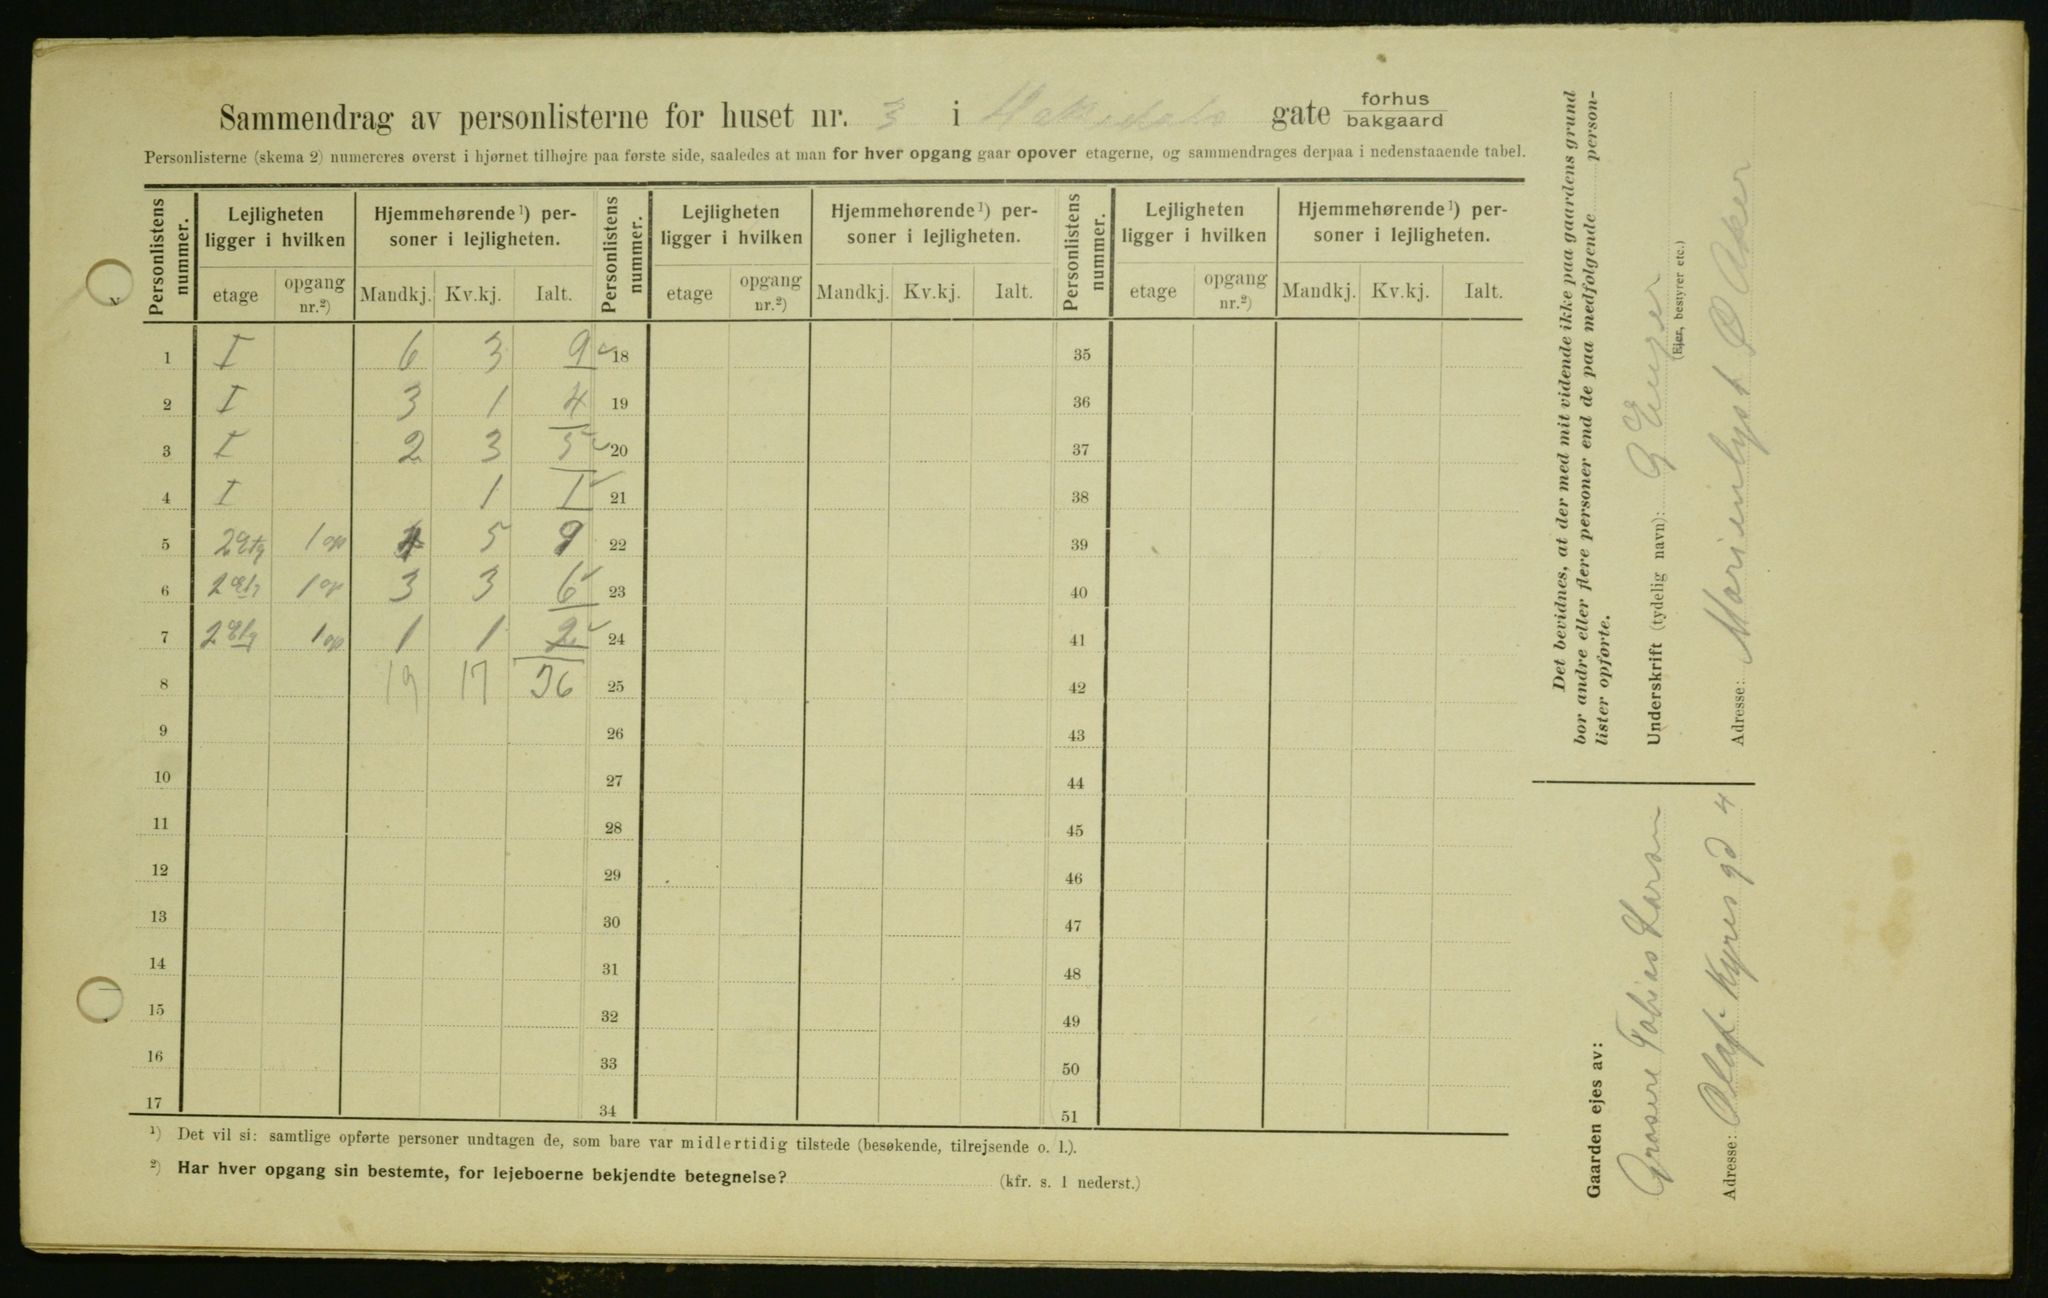 Sammendrag av personlisterne for huset nr. 3 i gate forhus bakgaard
Personlisterne (skema 2) numereres øverst i hjørnet tilhøjre paa første side, saaledes at man for hver opgang gaar opover etagerne, og sammendrages derpaa i nedenstaaende tabel.
Personlistens nummer. Lejligheten ligger i hvilken Hjemmehørende¹) personer i lejligheten. Personlistens nummer. Lejligheten ligger i hvilken Hjemmehørende¹) personer i lejligheten. Personlistens nummer. Lejligheten ligger i hvilken Hjemmehørende¹) personer i lejligheten.
etage opgang nr.²) Mandkj. Kv.kj. Ialt. etage opgang nr.²) Mandkj. Kv.kj. Ialt. etage opgang nr.²) Mandkj. Kv.kj. Ialt.
1 I 6 3 9 18 35
2 I 3 1 4 19 36
3 I 2 3 5 20 37
4 I 1 1 21 38
5 2 Etg 1 op 4 5 9 22 39
6 2 Etg 1 op 3 3 6 23 40
7 2 Etg 1 op 1 1 2 24 41
8 19 17 36 25 42
9 26 43
10 27 44
11 28 45
12 29 46
13 30 47
14 31 48
15 32 49
16 33 50
17 34 51
¹) Det vil si: samtlige opførte personer undtagen de, som bare var midlertidig tilstede (besøkende, tilrejsende o. l.).
²) Har hver opgang sin bestemte, for lejeboerne bekjendte betegnelse? (kfr. s. 1 nederst.)
Det bevidnes, at der med mit vidende ikke paa gaardens grund
bor andre eller flere personer end de paa medfølgende personlister opførte.
Underskrift (tydelig navn): G Enger
(Ejer, bestyrer etc.)
Adresse: Marienlyst Ø Aker
Gaarden ejes av:
Grosere Tobias Larsen
Adresse: Olaf Kyres gd 4